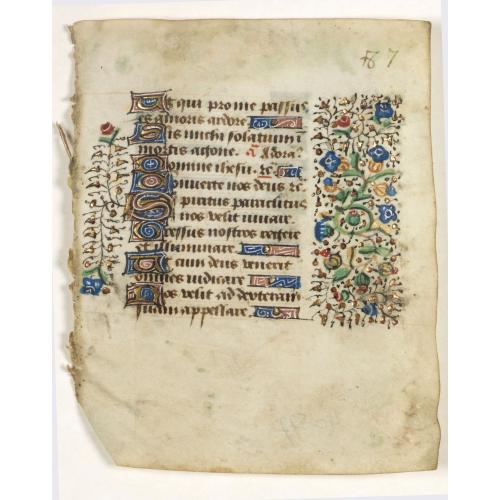 67
Et qui pro me passus
es amoris ardore
Sis michi solatium i
mortis agone. Adora
Domine ihesu
Converte nos deus
Spiritus paraclitus
nos velit iuvare
Gressus nostros regere
et illuminare
cum deus venerit
omnes iudicare
Nos velit ad dexteram
suam appellare